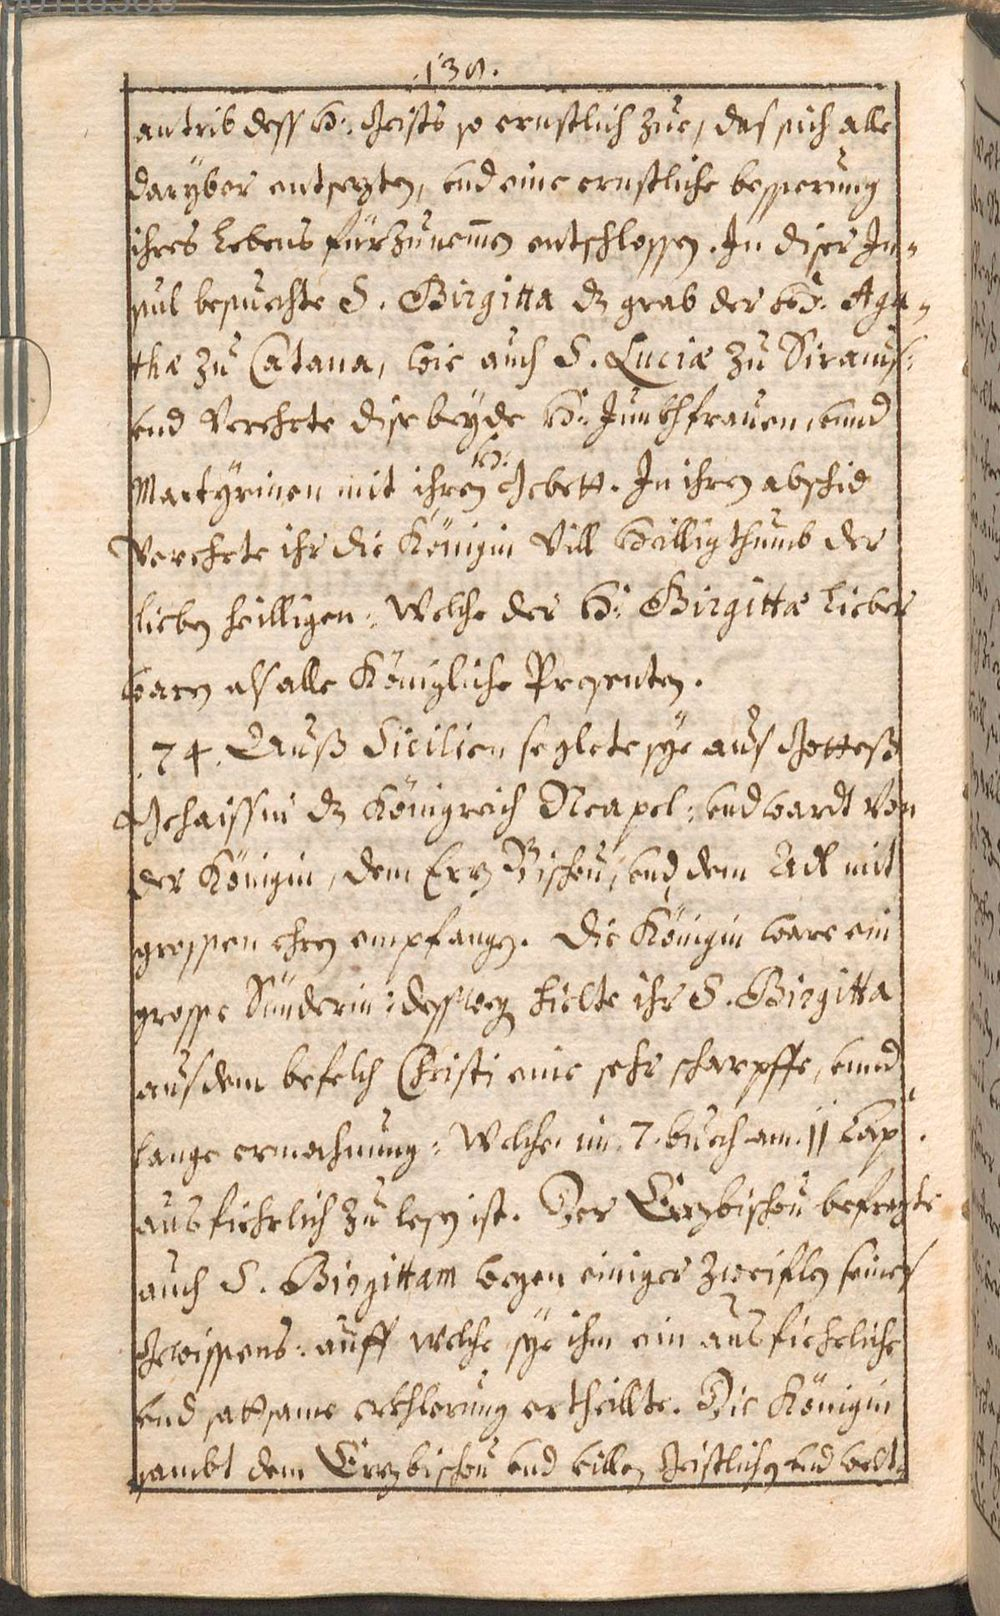 .138.
antrib dess H: Geists so ernstlich zue, das sich alle
darÿber entsezten, und eine ernstliche besserung
ihres Lebens fürzunemen entschlossen. In diser In=
sul besuechte S. Birgitta dz grab der H: Aga=
thæ zu Catana, wie auch S. Luciæ zu Siracus:
und Verehrte dise beÿde H: Junkhfrauen, unnd
Martÿrinen mit ihren H: Gebett. In ihren abschid
Verehrte ihr die Königin Vill Heilligthumb der
lieben heilligen: Welche der H: Birgittæ lieber
waren als alle Königliche Presenten.
74. Auß Sicilien seglete sÿe aus Gotteß
Gehaiss in dz Königreich Neapel: und wardt Von
der Königin, dem Erz Bischou, und dem Adl mit
grossen ehren empfangen. Die Königin ware ein
grosse Sünderin: dessweg hielte ihr S. Birgitta
aus dem befelch Christi eine sehr scharpffe, unnd
lange ermahnung: Welche im 7. buech am. 11 Cap.
ausfiehrlich zu lesen ist. Der Erzbischou befragte
auch S. Birgittam wegen einiger zweiflen seines
Gewissens: auff welche sÿe ihm ein ausfiehrliche
und sattsame erkhlerung ertheillte. Die Königin
sambt dem Erzbischou und villen Geistlichen und welt=